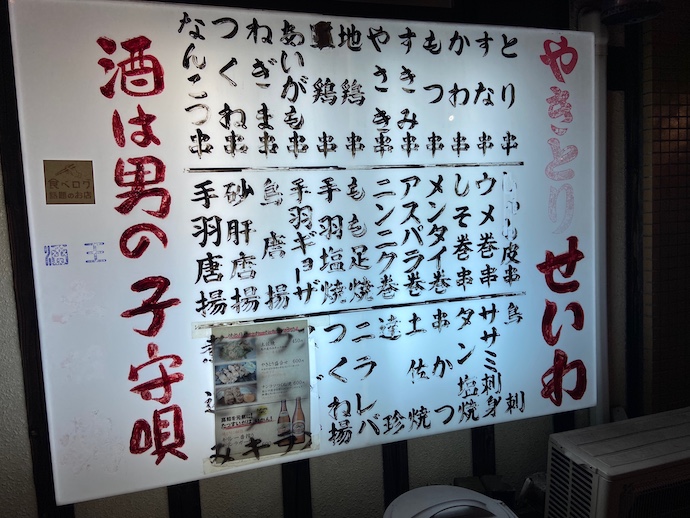 やきとり せいわ
とり串
すな串
かわ串
もつ串
すきみ串
やさき串
地鶏串
鶏串
あいがも串
ねぎま串
つくね串
なんこつ串
皮串
ウメ巻串
しそ巻串
メンタイ巻
アスパラ巻
ニンニク巻
もも足焼
手羽塩焼
手羽ギョーザ
鳥唐揚
砂肝唐揚
手羽唐揚
鳥刺
ササミ刺身
タン塩焼
串かつ
土佐焼
珍
ニラレバ
つくね揚
酒は男の子守唄
食べログ
話題のお店